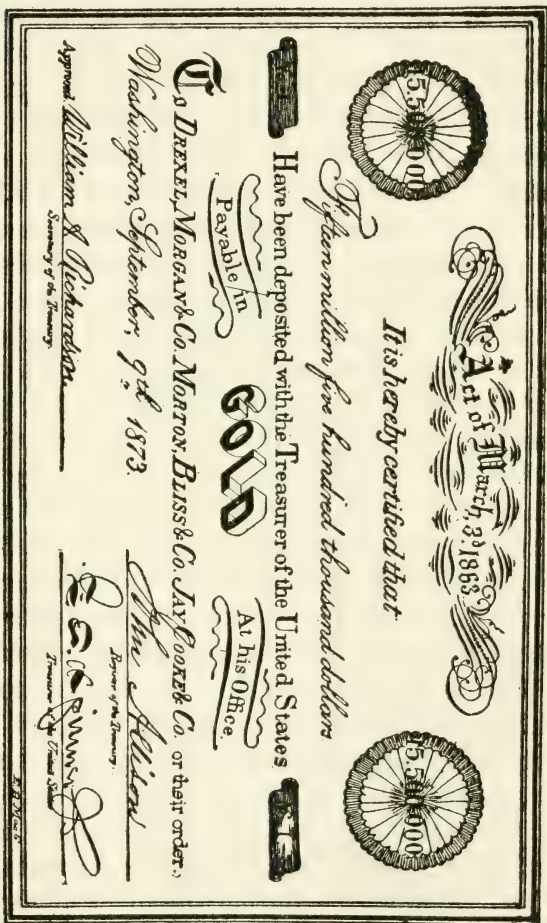 Act of March, 3d 1863.
15.500.000
15.500.000
It is hereby certified that
Fifteen million five hundred thousand dollars
Have been deposited with the Treasurer of the United States
Payable in
GOLD
At his Office.
To DREXEL, MORGAN & Co. MORTON, BLISS & Co. JAY COOKE & Co. or their order.
Washington, September, 9th 1873.
John Allison
Register of the Treasury.
Approved William A Richardson
Secretary of the Treasury.
Treasurer of the United States